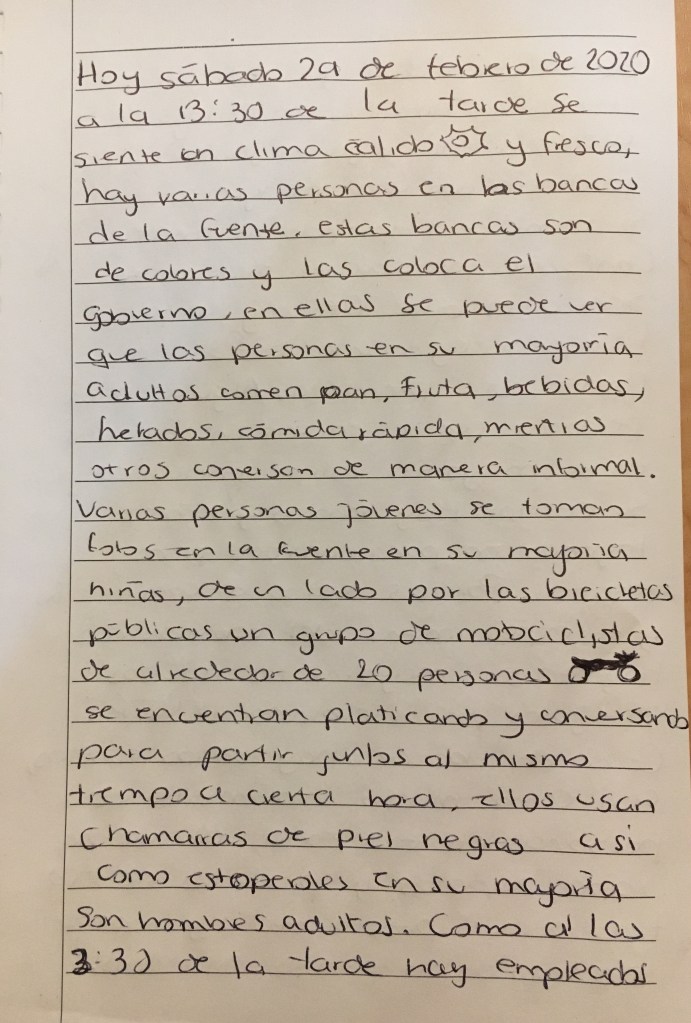 Hoy sábado 29 de febrero de 2020
a la 13:30 de la tarde se
siente un clima cálido y fresco,
hay varias personas en las bancas
de la fuente, estas bancas son
de colores y las coloca el
gobierno, en ellas se puede ver
que las personas en su mayoría
adultos comen pan, fruta, bebidas,
helados, cómida rápida, mientras
otros conversan de manera informal.
Varias personas jóvenes se toman
fotos en la fuente en su mayoría
niñas, de un lado por las bicicletas
públicas un grupo de motociclistas
de alrededor de 20 personas
se encuentran platicando y conversando
para partir juntos al mismo
tiempo a cierta hora, Ellos usan
Chamarras de piel negras asi
como estoperoles en su mayoría
Son hombres adultos. Como a las
3:30 de la tarde hay empleados